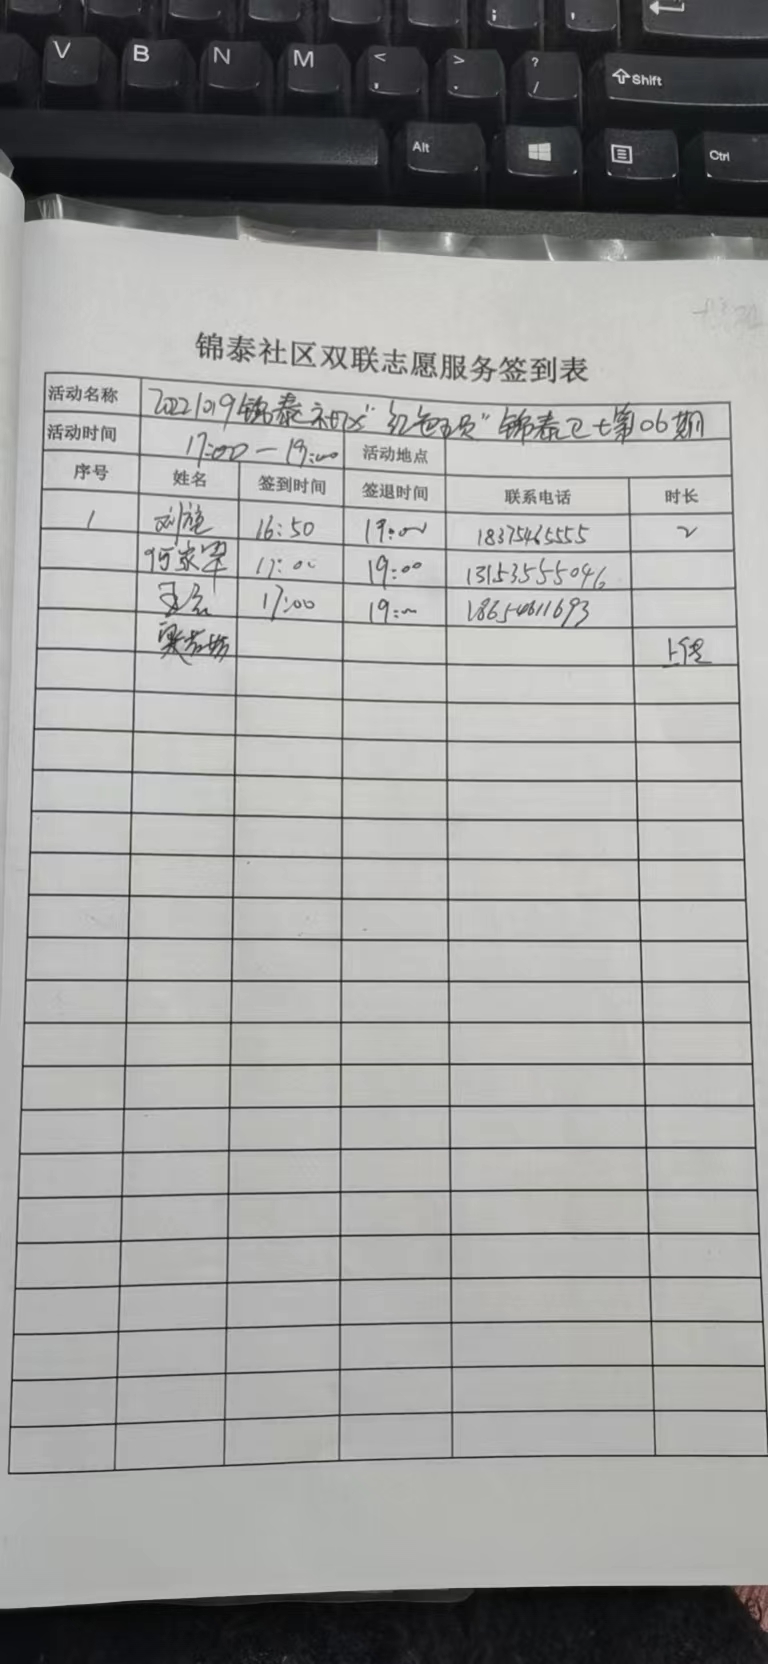 V B N M < , > . ? / Shift
Alt Ctrl
锦泰社区双联志愿服务签到表
活动名称 20221019锦泰社区"红色" 锦泰卫士第06期
活动时间 17:00—19:00 活动地点
序号 姓名 签到时间 签退时间 联系电话 时长
1 刘 16:50 19:00 18375465555 2
何家 17:00 19:00 13153555046
王 17:00 19:00 18654611693
上传